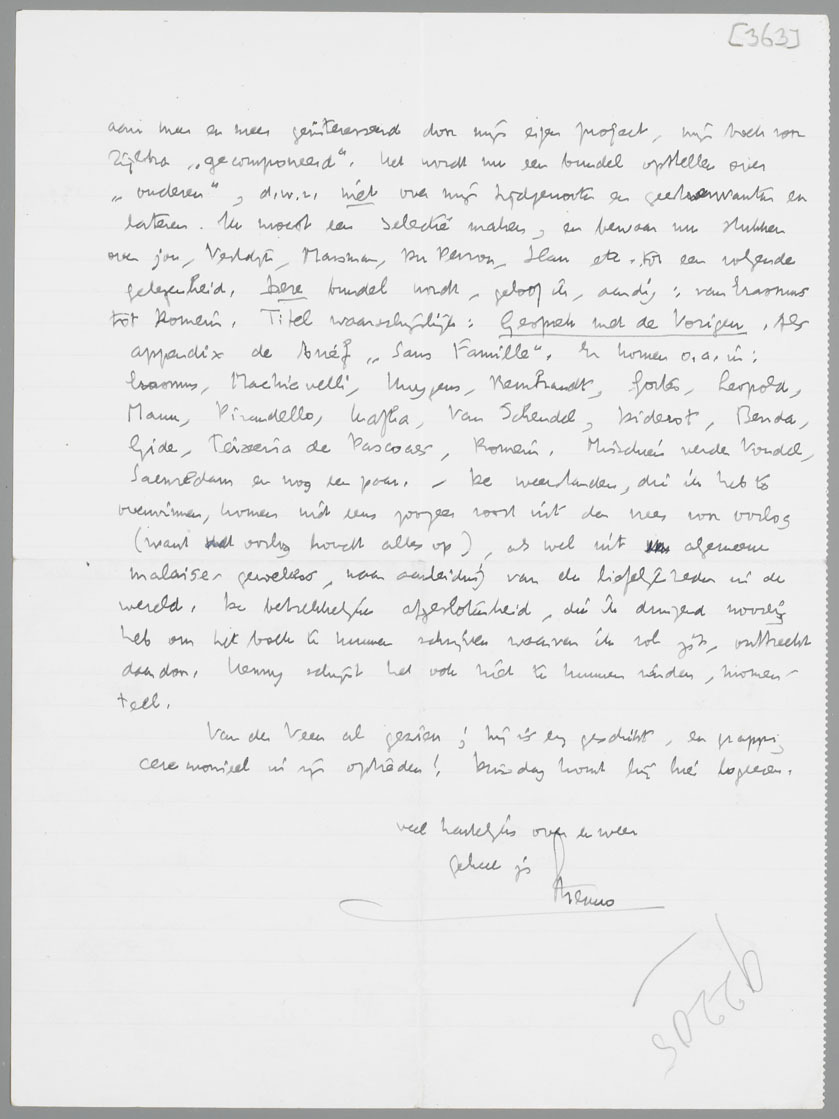 [363]
aan meer en meer geïnteresseerd door mijn eigen project, mijn boek voor
Zijlstra „gecomponeerd". Het wordt nu een bundel opstellen over
„ouderen", d.w.z. niet over mijn tijdgenooten en geestverwanten en
lateren. Ik moest een selectie maken, en bewaar nu stukken
over jou, Vestdijk, Marsman, Du Perron, Slau etc. tot een volgende
gelegenheid. Deze bundel wordt, geloof ik, aardig: van Erasmus
tot Romein. Titel waarschijnlijk: Gesprek met de Vorigen. Als
appendix de brief „Sans Famille". Er komen o.a. in:
Erasmus, Machiavelli, Huygens, Rembrandt, Leopold,
Mann, Pirandello, Kafka, Van Schendel, Diderot, Benda,
Gide, Teixeira de Pascoaes, Romein. Misschien verder Vondel,
Saenredam en nog een paar. – De weerstanden, die ik heb te
overwinnen, komen niet eens zoozeer voort uit den vrees voor oorlog
(want oorlog houdt alles op), als wel uit algemeene
malaise-gevoelens, naar aanleiding van de liefelijkheden in de
wereld. De betrekkelijke afgeslotenheid, die ik dringend noodig
heb om het boek te kunnen schrijven waarvan ik vol zit, ontbreekt
daardoor. Henny schijnt het ook niet te kunnen vinden, momen-
teel.
Van der Veen al gezien; hij is erg geschikt, en grappig
ceremonieel in zijn optreden! Dinsdag komt hij hier logeeren.
veel hartelijks over en weer
geheel je
92205